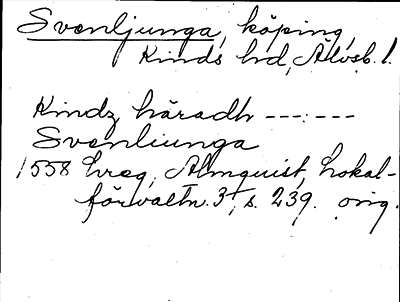 Svenljunga, köping,
Kinds hd, Älvsb. l.
Kindz häradh ---:---
Svenliunga
1558 hreg, Almquist, Lokal-
förvaltn. 3, s. 239. orig.